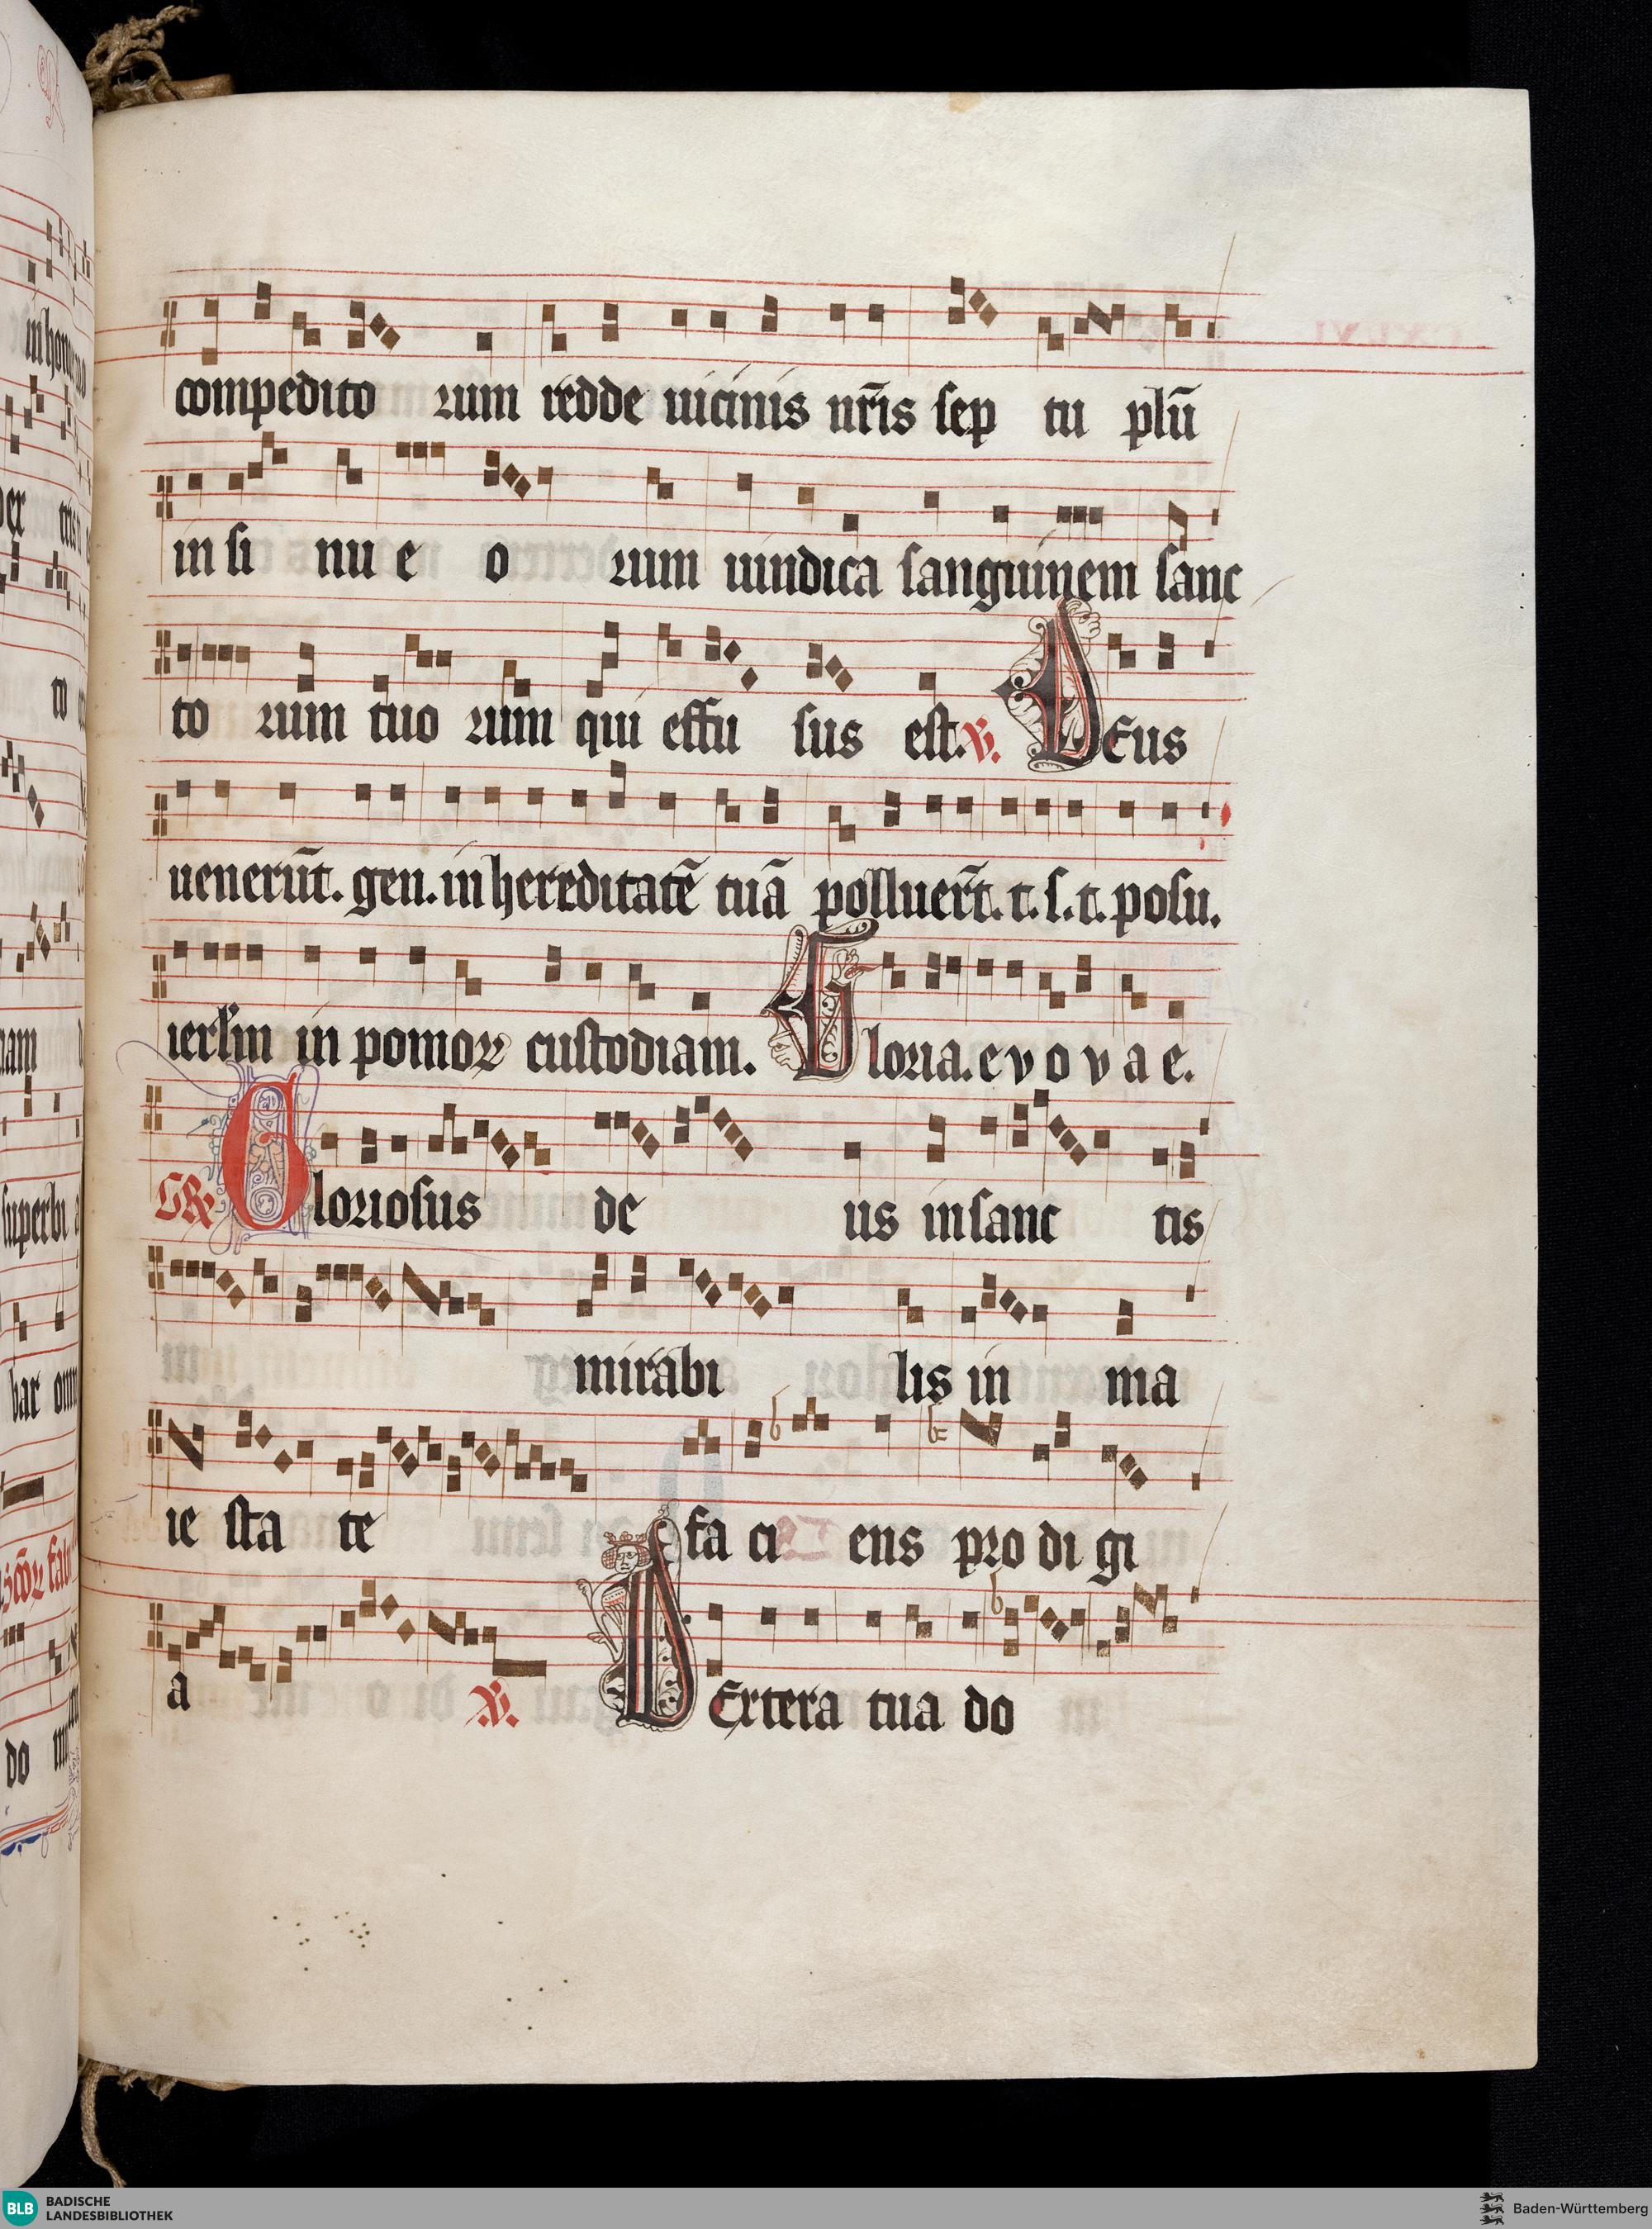 compedito rum redde uicinis nr̄is sep tu plū
in si nu e o rum uindica sanguinem sanc
to rum tuo rum qui effu sus est. V. Deus
uenerūt. gen. in hereditatē tuā polluer̄t. t. s. t. posu.
ierl'm in pomoꝝ custodiam. Gloria. e v o v a e.
GR Gloriosus de us in sanc tis
mirabi lis in ma
ie sta te fa ci ens pro di gi
a V. Dextera tua do
BLB BADISCHE
LANDESBIBLIOTHEK
Baden-Württemberg